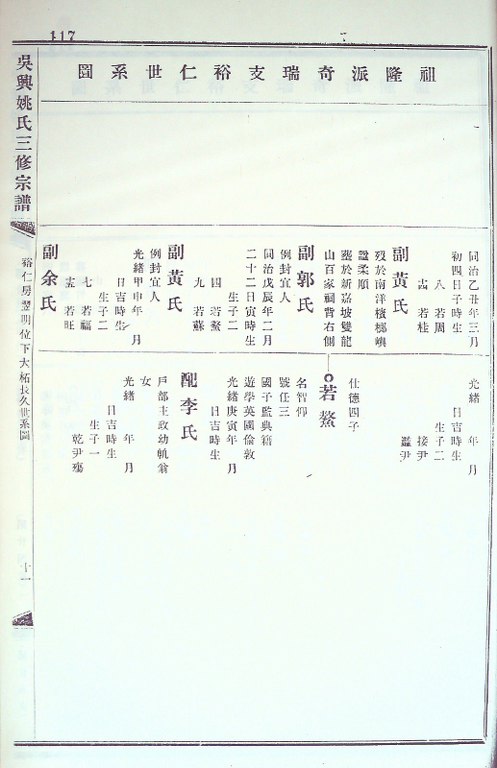 117
祖隆派奇瑞支裕仁世系圖
同治乙丑年三月
初四日子時生
八 若周
十五 若桂
副黃氏
歿於南洋檳榔嶼
諡柔順
塟於新嘉坡雙龍
山百家祠背右側
副郭氏
例封宜人
同治戊辰年二月
二十二日寅時生
生子二
四 若鰲
九 若蘇
副黃氏
例封宜人
光緒甲申年 月
日吉時生
生子二
七 若福
十五 若旺
副余氏
光緒 年 月
日吉時生
生子二
接尹
尹
仕德四子
若鰲
名智仰
號任三
國子監典籍
遊學英國倫敦
光緒庚寅年 月
日吉時生
配李氏
戶部主政幼軌翁
女
光緒 年 月
日吉時生
生子一
乾尹殤
吳興姚氏三修宗譜
裕仁房翌明位下大柘長久世系圖
十一